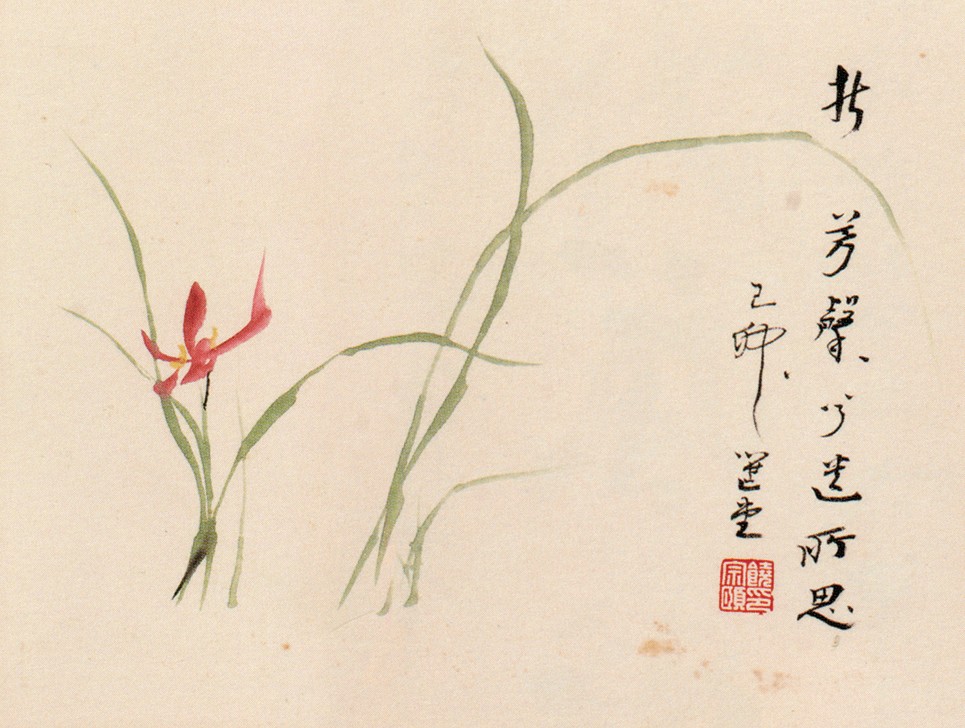 折芳馨兮遺所思
己卯選堂
饒印
宗頤